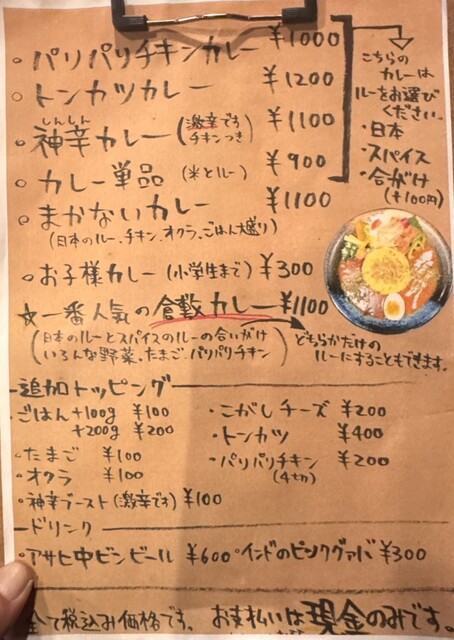 ・パリパリチキンカレー ¥1000
・トンカツカレー ¥1200
しんしん
・神辛カレー(激辛です チキンつき) ¥1100
・カレー単品(米とルー) ¥900
・まかないカレー ¥1100
(日本のルー、チキン、オクラ、ごはん大盛り)
・お子様カレー(小学生まで) ¥300
☆一番人気の倉敷カレー ¥1100
(日本のルーとスパイスのルーの合いがけ
いろんな野菜、たまご、パリパリチキン)
どちらかだけの
ルーにすることもできます。
こちらの
カレーは
ルーをお選び
ください。
・日本
・スパイス
・合がけ
(+100円)
追加トッピング
・ごはん+100g ¥100
+200g ¥200
・たまご ¥100
・オクラ ¥100
・神辛ブースト(激辛です) ¥100
・こがしチーズ ¥200
・トンカツ ¥400
・パリパリチキン ¥200
(4切)
ドリンク
・アサヒ中ビンビール ¥600 ・インドのピンクグァバ ¥300
全て税込み価格です。 お支払いは現金のみです。